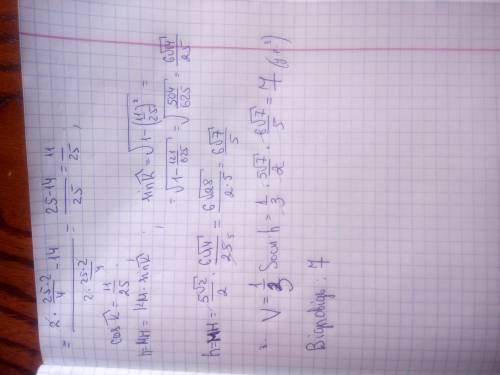 = (2 · 25·2/4 − 14) / (2 · 25·2/4) = (25−14)/25 = 11/25 ;
cos K̂ = 11/25 ; sin K̂ = √(1−(11/25)²) =
= √(1−121/625) = √(504/625) = 6√14/25
h=MH= KM · sin K̂
h=MH = 5√2/2 · 6√14/25 = 6√28/(2·5) = 6√7/5
3. V = 1/3 Sосн · h = 1/3 · 5√7/2 · 6√7/5 = 7
Відповідь: 7